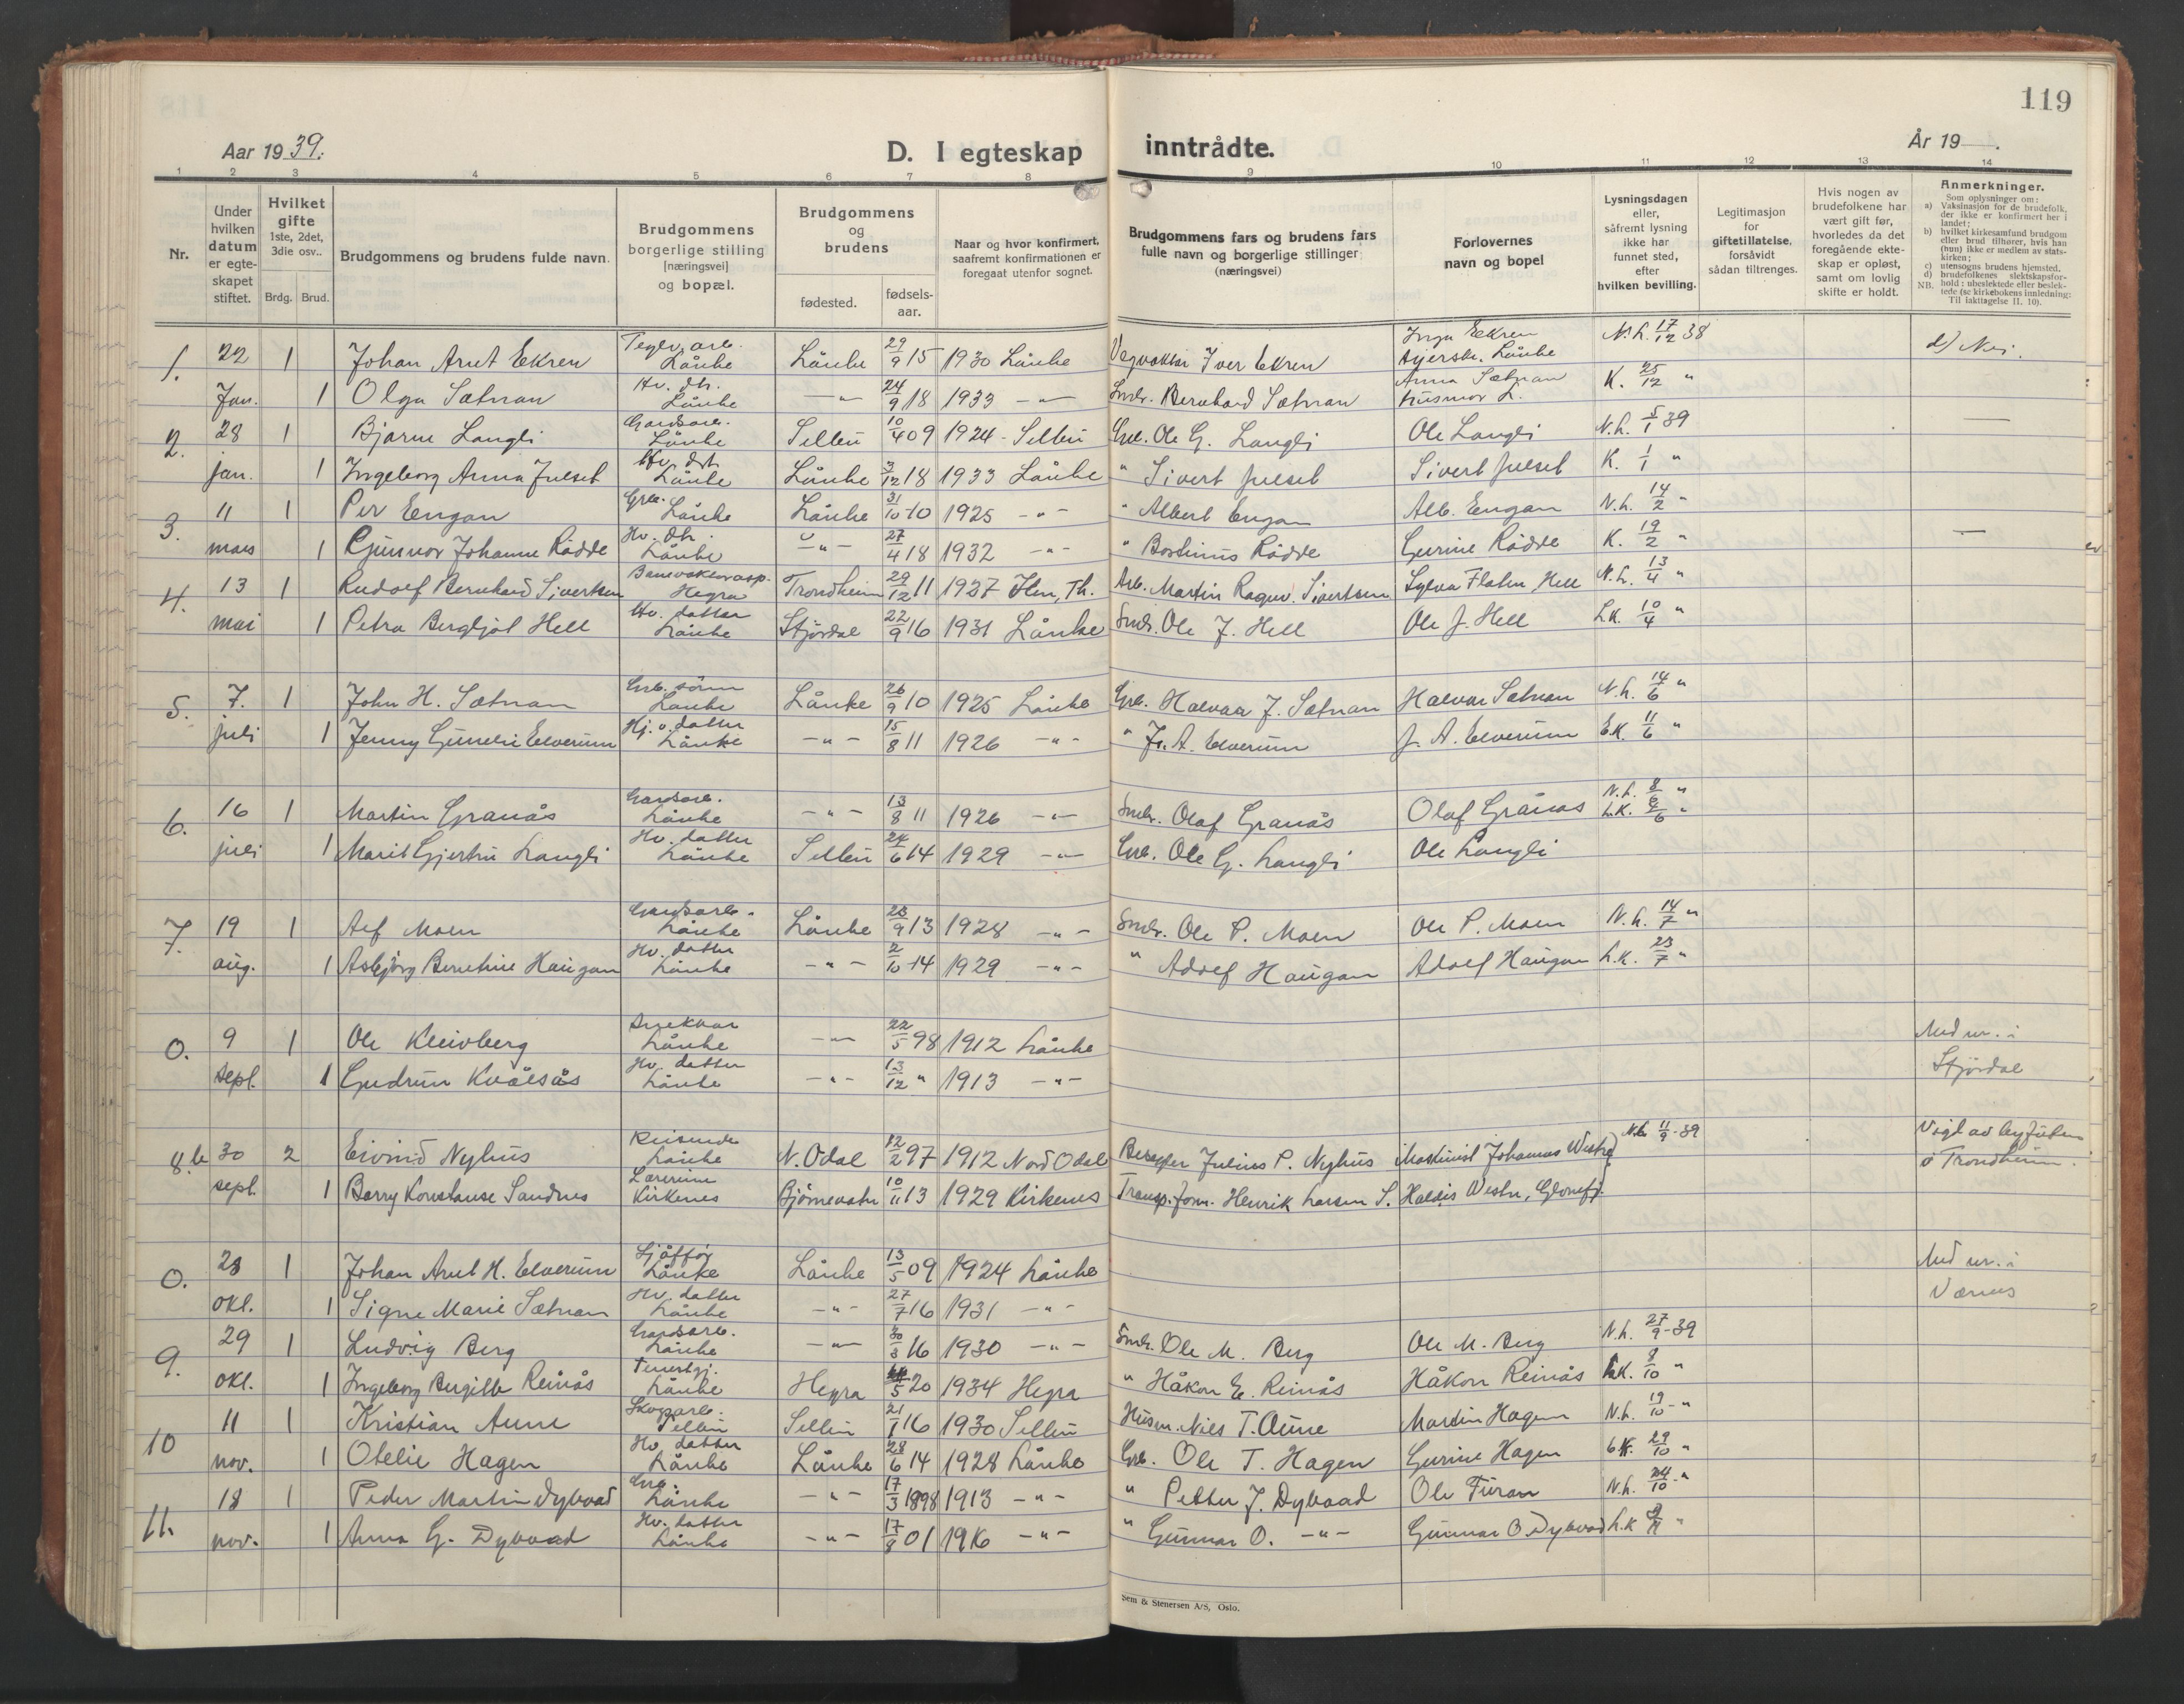 119
Aar 1939.
D. I egteskap inntrådte.
År 19 .
1 2 3 4 5 6 7 8 9 10 11 12 13 14
Nr.
Under hvilken datum er egteskapet stiftet.
Hvilket gifte 1ste, 2det, 3die osv..
Brdg. Brud.
Brudgommens og brudens fulde navn.
Brudgommens borgerlige stilling [næringsvei] og bopæl.
Brudgommens og brudens
fødested. fødsels-aar.
Naar og hvor konfirmert, saafremt konfirmationen er foregaat utenfor sognet.
Brudgommens fars og brudens fars fulle navn og borgerlige stillinger (næringsvei)
Forlovernes navn og bopel
Lysningsdagen eller, såfremt lysning ikke har funnet sted, efter hvilken bevilling.
Legitimasjon for giftetillatelse, forsåvidt sådan tiltrenges.
Hvis nogen av brudefolkene har vært gift før, hvorledes da det foregående ekteskap er opløst, samt om lovlig skifte er holdt.
Anmerkninger.
Som oplysninger om:
a) Vaksinasjon for de brudefolk, der ikke er konfirmert her i landet;
b) hvilket kirkesamfund brudgom eller brud tilhører, hvis han (hun) ikke er medlem av statskirken;
c) utensogns brudens hjemsted.
d) brudefolkenes slektskapsforhold: ubeslektede eller beslektede (se kirkebokens innledning:
NB. Til iakttagelse II. 10).
1. 22 1 Johan Arnt Ekren Teglv. arb. Lånke Lånke 29/9 15 1930 Lånke Vegvokter Iver Ekren Inga Ekren Lånke N.L. 17/12 38 d) Nei.
Jan. 1 Olga Sætnan Hv. dtr. Lånke -"- 24/9 18 1933 -"- Småbr. Bernhard Sætnan Anna Sætnan husmor L. K. 25/12 "
2. 28 1 Bjarne Langli Gardsarb. Lånke Selbu 10/4 09 1924 - Selbu Grb. Ole G. Langli Ole Langli N.L. 5/1 39 —
jan. 1 Ingeborg Anna Julset Hv. dtr. Lånke Lånke 3/12 18 1933 Lånke " Sivert Julset Sivert Julset K. 1/1 "
3. 11 1 Per Engan Grb. Lånke Lånke 31/10 10 1925 -"- " Albert Engan Alb. Engan N.L. 14/2 "
mars 1 Gunnor Johanne Rødde Hv. dtr. Lånke -"- 27/4 18 1932 -"- " Bostinus Rødde Gurine Rødde K. 19/2 " —
4. 13 1 Rudolf Bernhard Sivertsen Banevokterasp. Hegra Trondheim 29/12 11 1927 Ilen, Th. Arb. Martin Ragnv. Sivertsen Sylvia Flaten, Hell N.L. 13/4 "
mai 1 Petra Bergljot Hell Hv. datter Lånke Stjørdal 22/9 16 1931 Lånke Småbr. Ole J. Hell Ole J. Hell L.K. 10/4 "
5. 7. 1 John H. Sætnan Grb. sønn Lånke Lånke 26/9 10 1925 Lånke Grb. Halvar J. Sætnan Halvar Sætnan N.L. 14/6 "
juli 1 Jenny Gunelie Elverum Hj. v. datter Lånke -"- 15/8 11 1926 -"- " J. A. Elverum J. A. Elverum E.K. 11/6 "
6. 16 1 Martin Granås Gardsarb. Lånke -"- 13/8 11 1926 -"- Småbr. Olaf Granås Olaf Granås N.L. 8/6 " L.K.
juli 1 Marit Gjertru Langli Hv. datter Lånke Selbu 24/6 14 1929 -"- Grb. Ole G. Langli Ole Langli
7. 19 1 Alf Moen Gardsarb. Lånke Lånke 23/9 13 1928 -"- Småbr. Ole P. Moen Ole P. Moen N.L. 14/7 "
aug. 1 Asbjørg Berntine Haugan Hv. datter Lånke -"- 2/10 14 1929 -"- " Adolf Haugan Adolf Haugan L.K. 23/7 "
0. 9 1 Ole Kleivberg Lånke -"- 22/5 98 1912 Lånke Utd. ur. i
sept. 1 Gudrun Kvålsås Hv. datter Lånke -"- 13/12 " 1913 -"- Stjørdal
8.b 30 2 Eivind Nyhus Reisende Lånke N. Odal 12/2 97 1912 Nord Odal Julius P. Nyhus Maskinist Johannes N.L. 11/9-39 Vigd av byfuten
sept. 1 Barry Konstanse Sandnes Lærerinne Kirkenes Bjørnevatn 10/11 13 1929 Kirkenes Transp.form. Henrik Larsen S. Haldis i Trondheim.
0. 28 1 Johan Arnt H. Elverum Sjåffør Lånke Lånke 13/5 09 1924 Lånke Utd ur. i
okt. 1 Signe Marie Sætnan Hv. datter Lånke -"- 27/7 16 1931 -"- Værnes
9. 29 1 Ludvig Berg Gardsarb. Lånke -"- 30/3 16 1930 -"- Småbr. Ole M. Berg Ole M. Berg N.L. 27/9-39
okt. 1 Ingeborg Bergitte Reinås Tenestgj. Lånke Hegra /5 20 1934 Hegra " Håkon E. Reinås Håkon Reinås L.K. 8/10 "
10 11 1 Kristian Aune Skogsarb. Selbu Selbu 21/1 16 1930 Selbu Husm. Nils T. Aune Martin Hagen N.L. 19/10 - "
nov. 1 Otelie Hagen Hv. datter Lånke Lånke 28/6 14 1928 Lånke Grb. Ole T. Hagen Gurine Hagen K. 29/10 "
11. 18 1 Peder Martin Dybvad Grb. Lånke -"- 17/3 1898 1913 -"- " Petter J. Dybvad Ole Furan N.L. 24/10 - "
nov. 1 Anna G. Dybvad Hv. datter Lånke -"- 17/8 01 1916 -"- " Gunnar O. -"- Gunnar O. Dybvad L.K "
Sem & Stenersen A/S, Oslo.